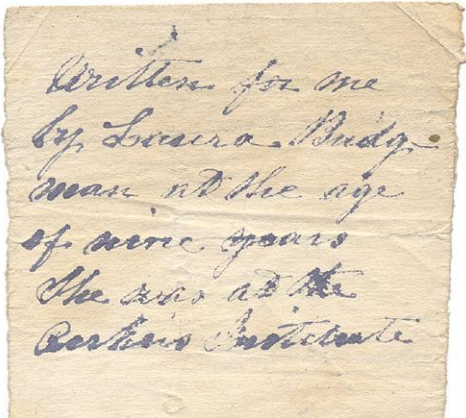 Written for me
by Laura Bridg-
man at the age
of nine years
She was at the
Perkins Institute